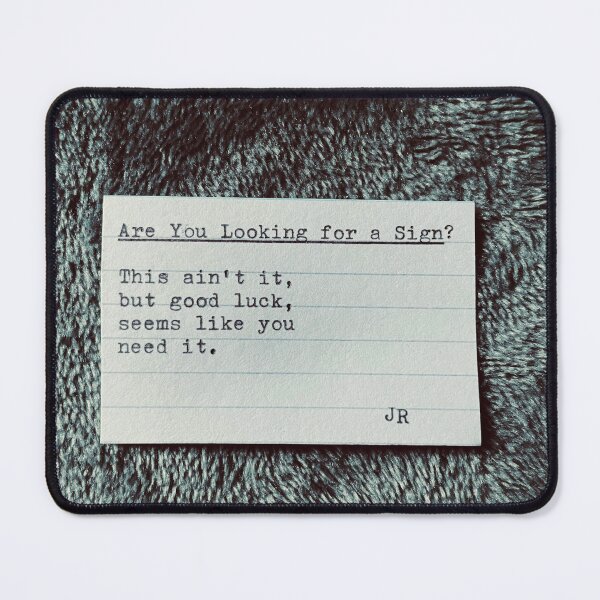 Are You Looking for a Sign?
This ain't it,
but good luck,
seems like you
need it.
JR